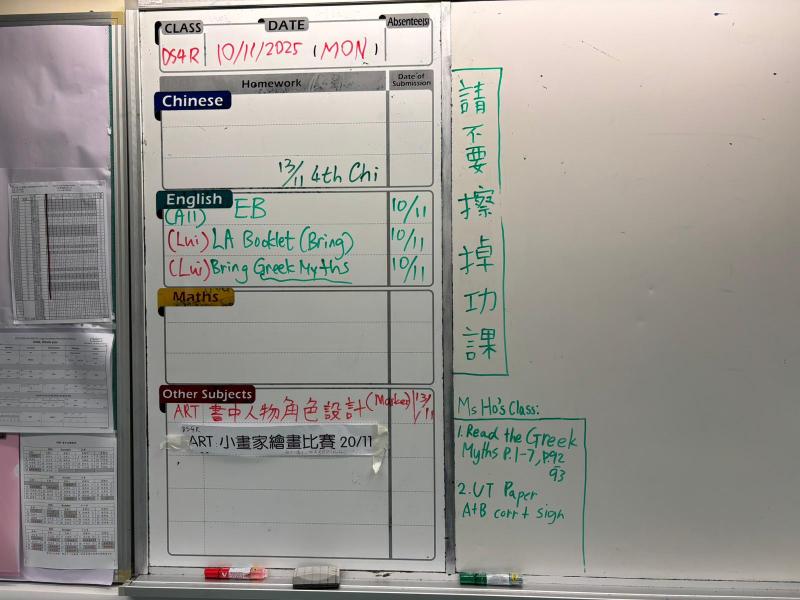 CLASS DATE Absentee(s)
DS4R 10/11/2025 (MON)
Homework Date of Submission
Chinese
13/11 4th Chi
English
(All) EB 10/11
(Lui) LA Booklet (Bring) 10/11
(Lui) Bring Greek Myths 10/11
Maths
Other Subjects
ART 書中人物角色設計 (Marker) 13/11
DS4R
ART 小畫家繪畫比賽 20/11
請不要擦掉功課
Ms Ho's Class:
1. Read the Greek
Myths P.1-7, P.92
93
2. UT Paper
A+B corr + sign